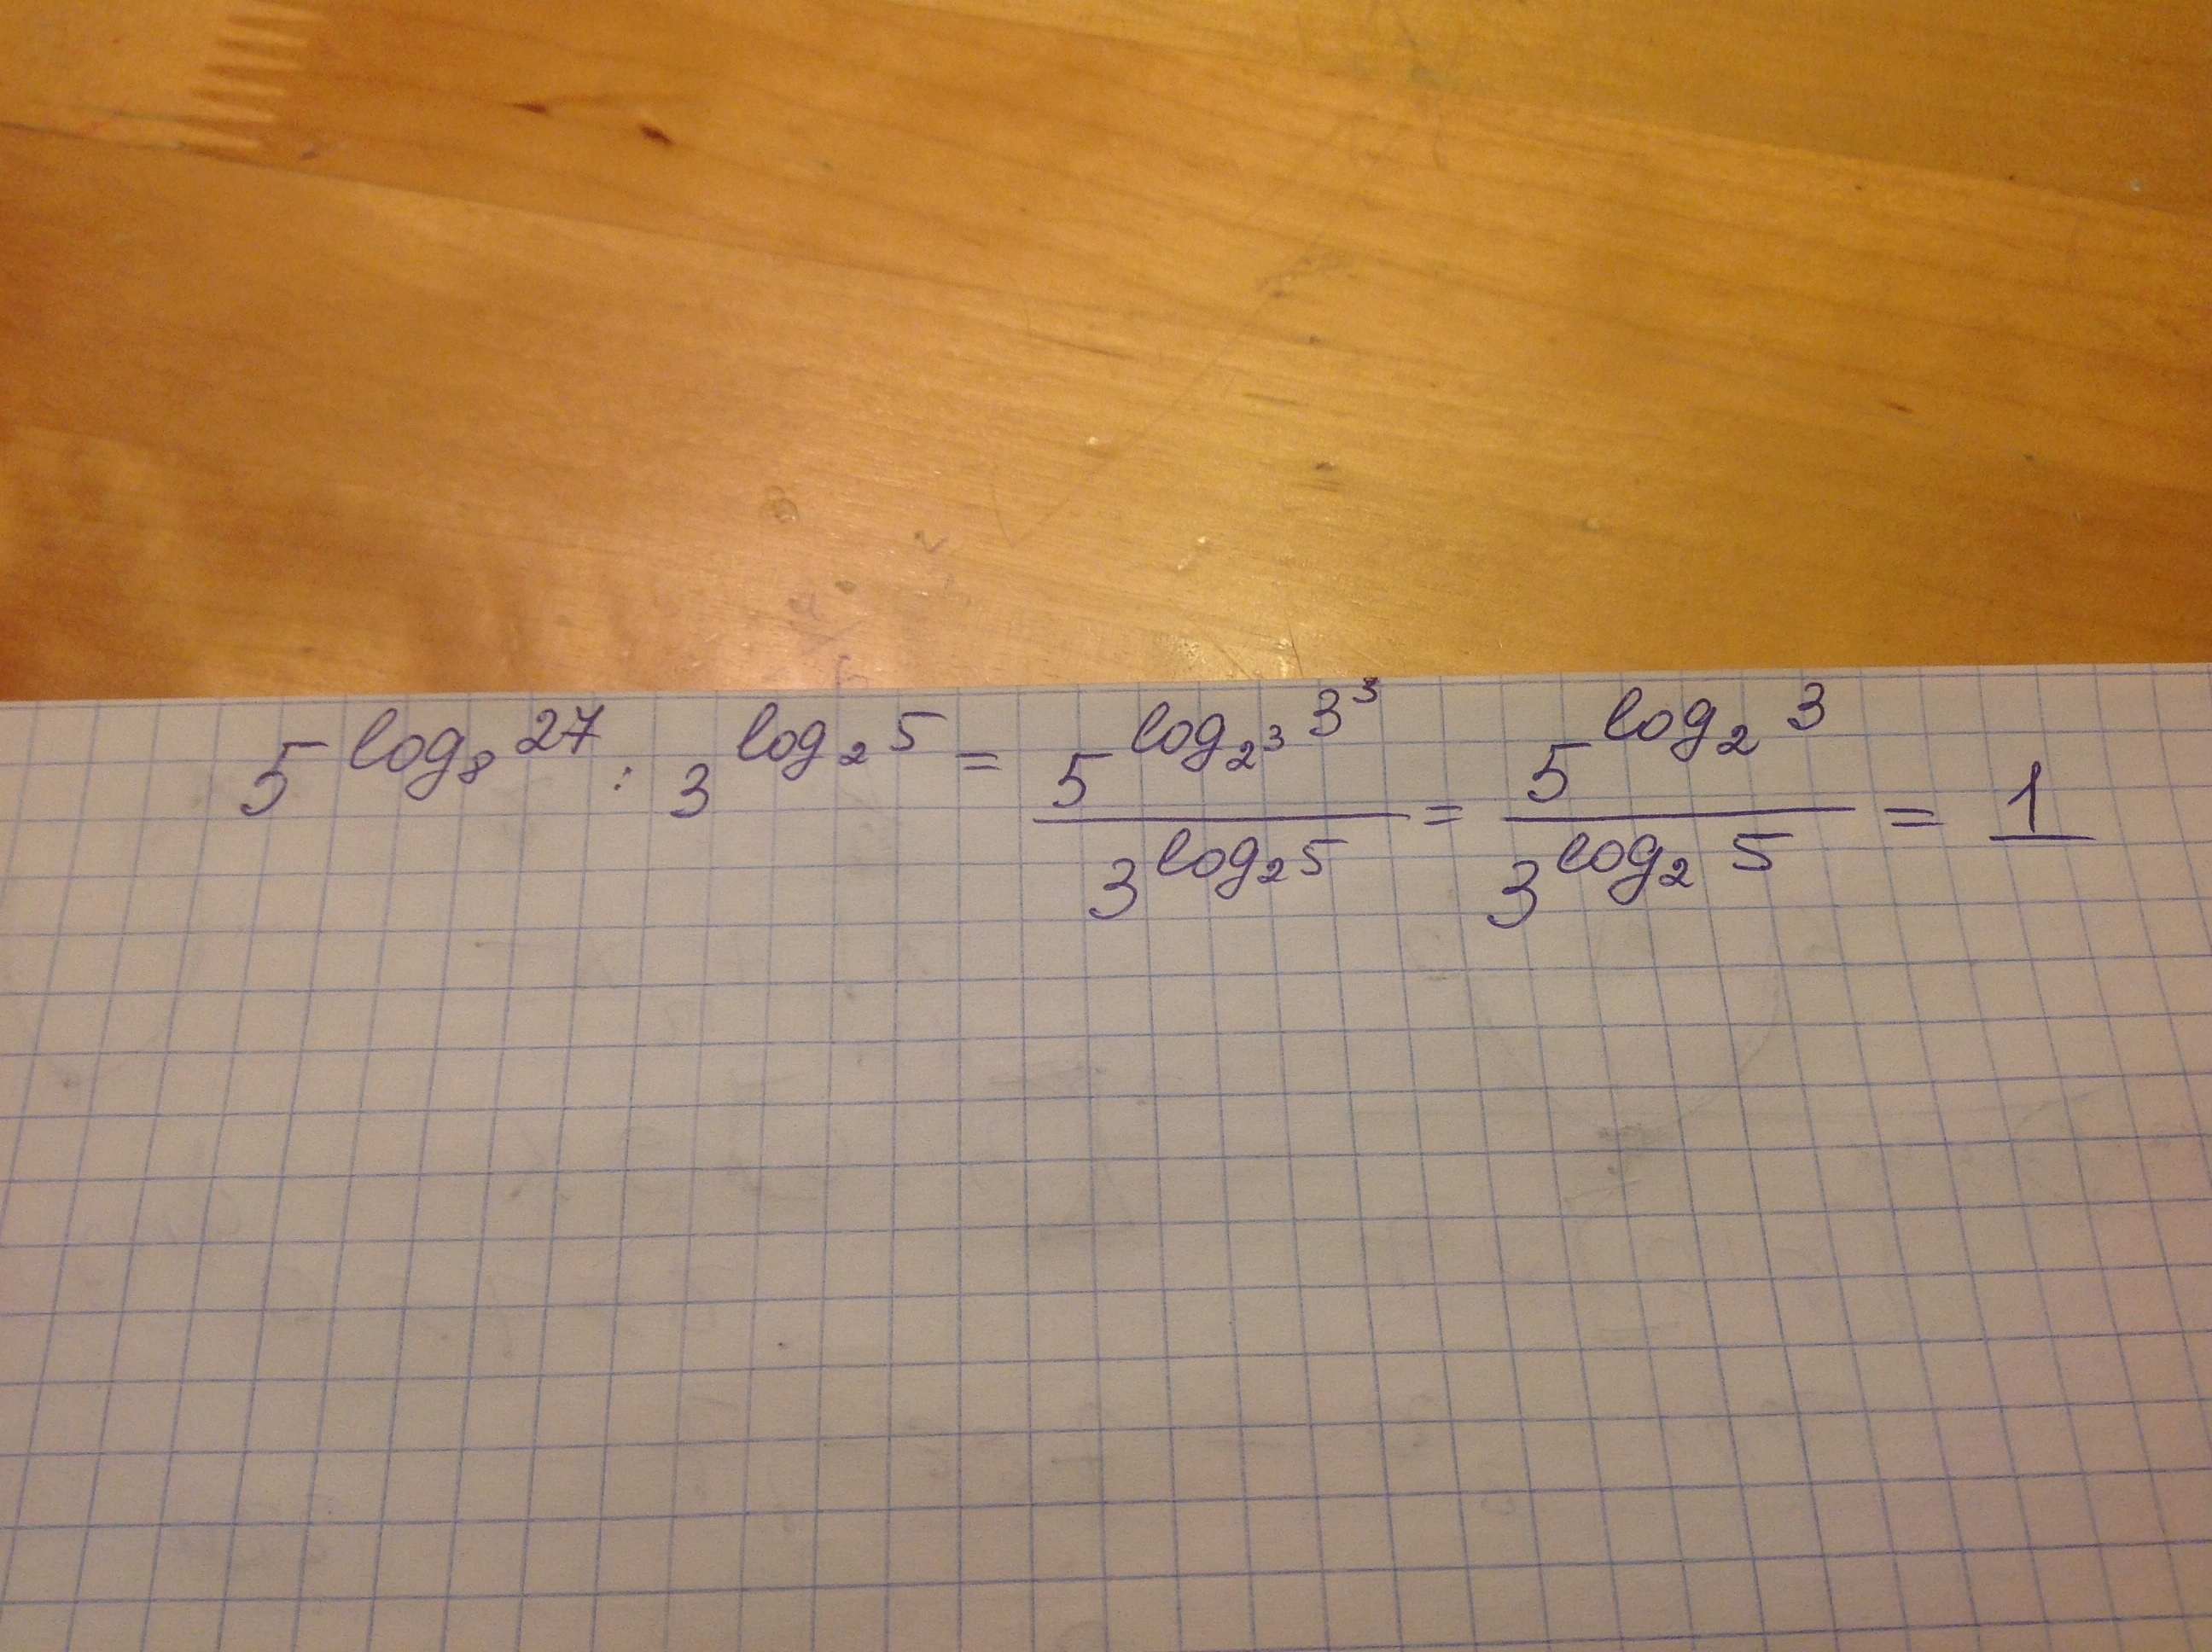 5^{log_8 27} : 3^{log_2 5} = \frac{5^{log_{2^3} 3^3}}{3^{log_2 5}} = \frac{5^{log_2 3}}{3^{log_2 5}} = 1